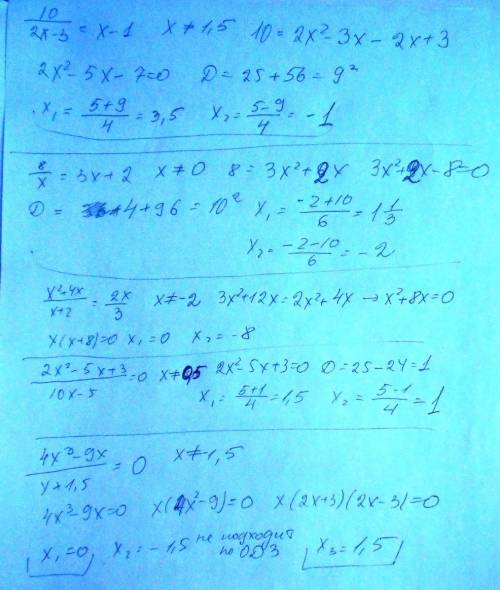 10/(2x-3) = x-1   x≠1,5   10 = 2x²-3x-2x+3
2x²-5x-7=0   D=25+56=9²
x₁ = (5+9)/4 = 3,5   x₂ = (5-9)/4 = -1
8/x = 3x+2   x≠0   8 = 3x²+2x   3x²+2x-8=0
D = 4+96 = 10²   x₁ = (-2+10)/6 = 1 1/3
x₂ = (-2-10)/6 = -2
(x²+4x)/(x+2) = 2x/3   x≠-2   3x²+12x=2x²+4x → x²+8x=0
x(x+8)=0   x₁=0   x₂=-8
(2x²-5x+3)/(10x-5) = 0   x≠0,5   2x²-5x+3=0   D=25-24=1
x₁ = (5+1)/4 = 1,5   x₂ = (5-1)/4 = 1
(4x³-9x)/(x+1,5) = 0   x≠-1,5
4x³-9x=0   x(4x²-9)=0   x(2x+3)(2x-3)=0
x₁=0   x₂=-1,5 не подходит по ОДЗ   x₃=1,5